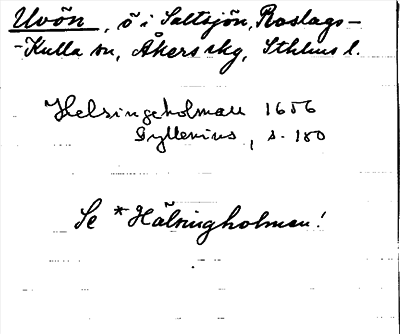 Uvön, ö i Saltsjön, Roslags-
-Kulla sn, Åkers skg, Sthlms l.
Helsingeholmen 1656
Gyllenius, s. 180
Se *Hälsingholmen!